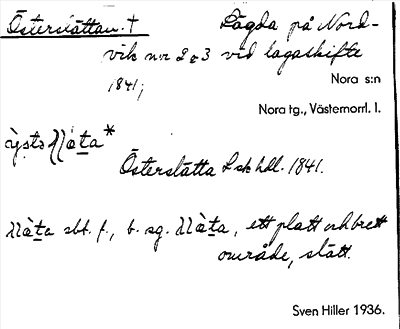 Österslåttan. † Lägda på Nord-
vik nr 2 o 3 vid lagaskifte
1841;
Nora s:n
Nora tg., Västernorrl. l.
Österslåtta Lsk hdl. 1841.
sbt. f., b. sg. , ett platt och brett
område, slått.
Sven Hiller 1936.